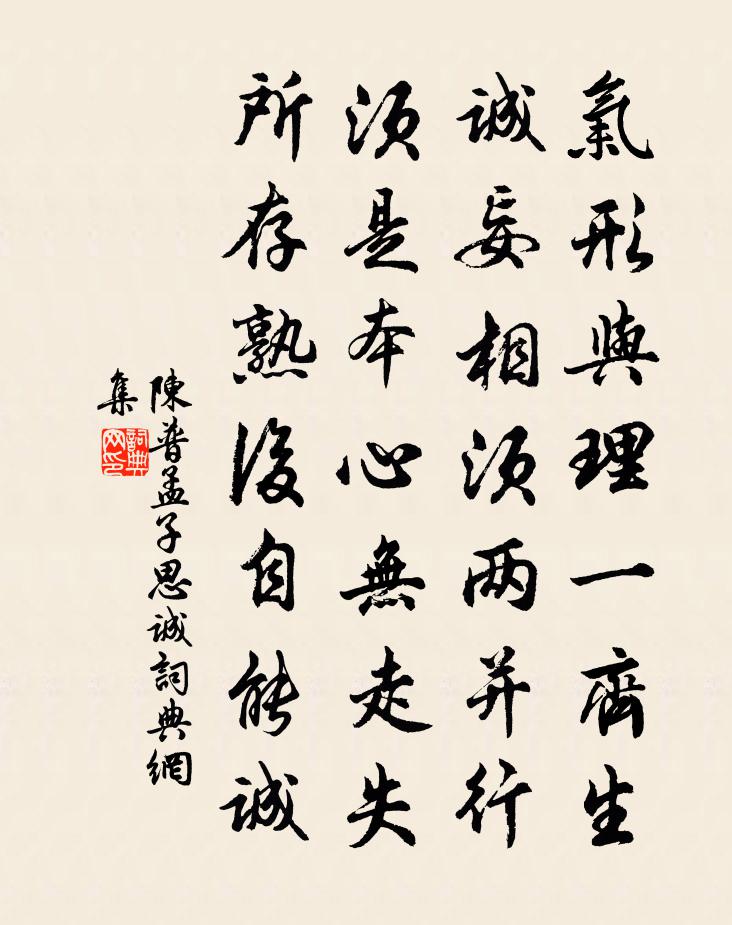 氣形與理一齊生
誠妄相須兩并行
須是本心無走失
所存熟後自能誠
陳普孟子思誠詞典網
集
詞典網印